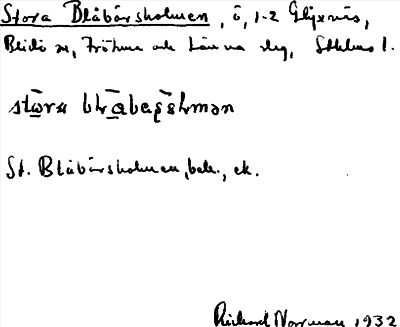 Stora Blåbärsholmen, ö, 1-2 Glyxnäs,
Blidö sn, Fröhuna och Länna slg, Sthlms l.
St. Blåbärsholmen, bete, ek.
Rickard Norrman 1932